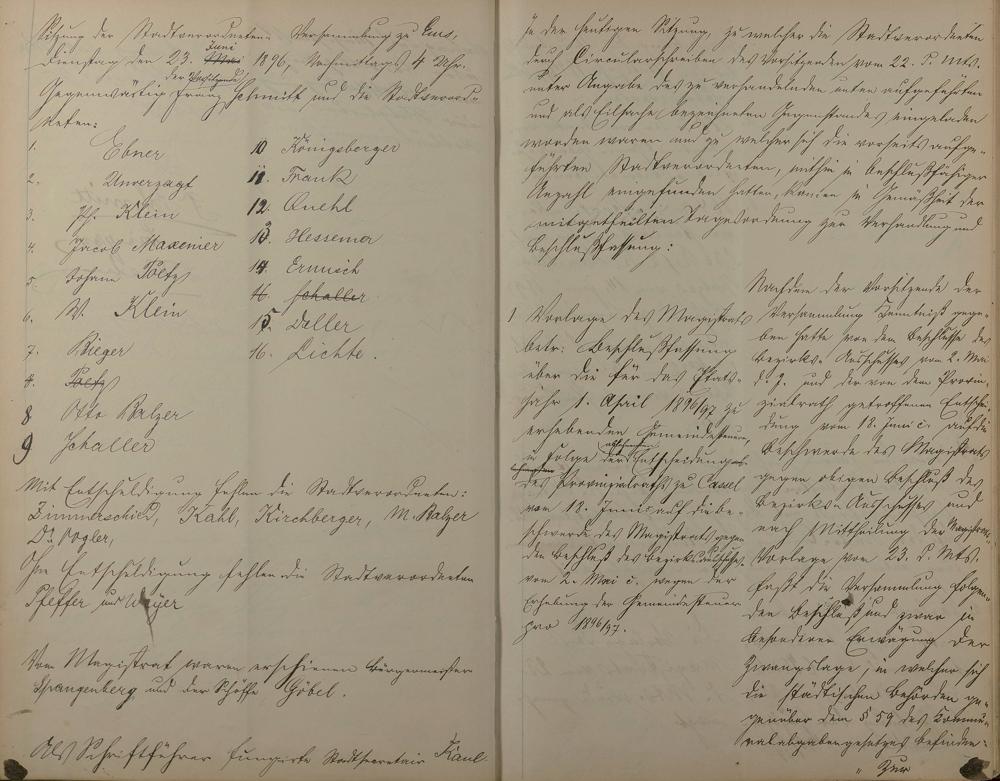 Sitzung der Stadtverordneten-Versammlung zu Ems,
Dienstag den 23. Juni Mai 1896, Nachmittags 4 Uhr.
Gegenwärtig der Vorsitzende Franz Schmitt und die Stadtverord-
neten:
1. Ebner
2. Unverzagt
3. Ph. Klein
4. Jacob Maxeiner
5. Johann Poltz
6. W. Klein
7. Bieger
8. Poltz
8 Otto Balzer
9 Schaller
10 Königsberger
11. Frank
12. Quehl
13. Hessemer
14. Ermisch
16. Schaller
15. Doller
16. Lichte.
Mit Entschuldigung fehlen die Stadtverordneten:
Zimmerschied, Kahl, Kirchberger, M. Balzer
Dr. Vogler,
Ohne Entschuldigung fehlen die Stadtverordneten
Pfeffer und Weyer
Vom Magistrat waren erschienen Bürgermeister
Spangenberg und der Schöffe Göbel.
Als Schriftführer fungirte Stadtsecretair Kaul
In der heutigen Sitzung, zu welcher die Stadtverordneten
durch Circularschreiben des Vorsitzenden vom 22. d. Mts.
unter Angabe des zu verhandelnden unten aufgeführten
und als Eilsache bezeichneten Gegenstandes eingeladen
worden waren und zu welcher sich die vorseits aufge-
führten Stadtverordneten, mithin in beschlußfähiger
Anzahl eingefunden hatten, kamen in Gemäßheit der
mitgetheilten Tagesordnung zur Verhandlung und
Beschlußfassung:
1 Vorlage des Magistrats
betr: Beschlußfassung
über die für das Etats-
jahr 1. April 1896/97 zu
erhebenden Gemeindesteuern,
in Folge der Entscheidung
des Provinzialraths zu Cassel
vom 18. Juni c. auf die Be-
schwerde des Magistrats gegen
den Beschluß des Bezirksausschusses
vom 2. Mai c. wegen der
Erhebung der Gemeindesteuer
pro 1896/97.
Nachdem der Vorsitzende der
Versammlung Kenntniß gege-
ben hatte von dem Beschlusse des
Bezirks-Ausschusses vom 2. Mai
d. J. und der von dem Provin-
zialrath getroffenen Entschei-
dung vom 18. Juni c. auf die
Beschwerde des Magistrats
gegen obigen Beschluß des
Bezirks-Ausschusses und
nach Mittheilung der Magistrats-
Vorlage vom 23. d. Mts.
faßt die Versammlung folgen-
den Beschluß und zwar in
besonderer Erwägung der
Zwangslage, in welcher sich
die städtischen Behörden ge-
genüber dem § 59 des Kommu-
nalabgabengesetzes befinden:
" Zur